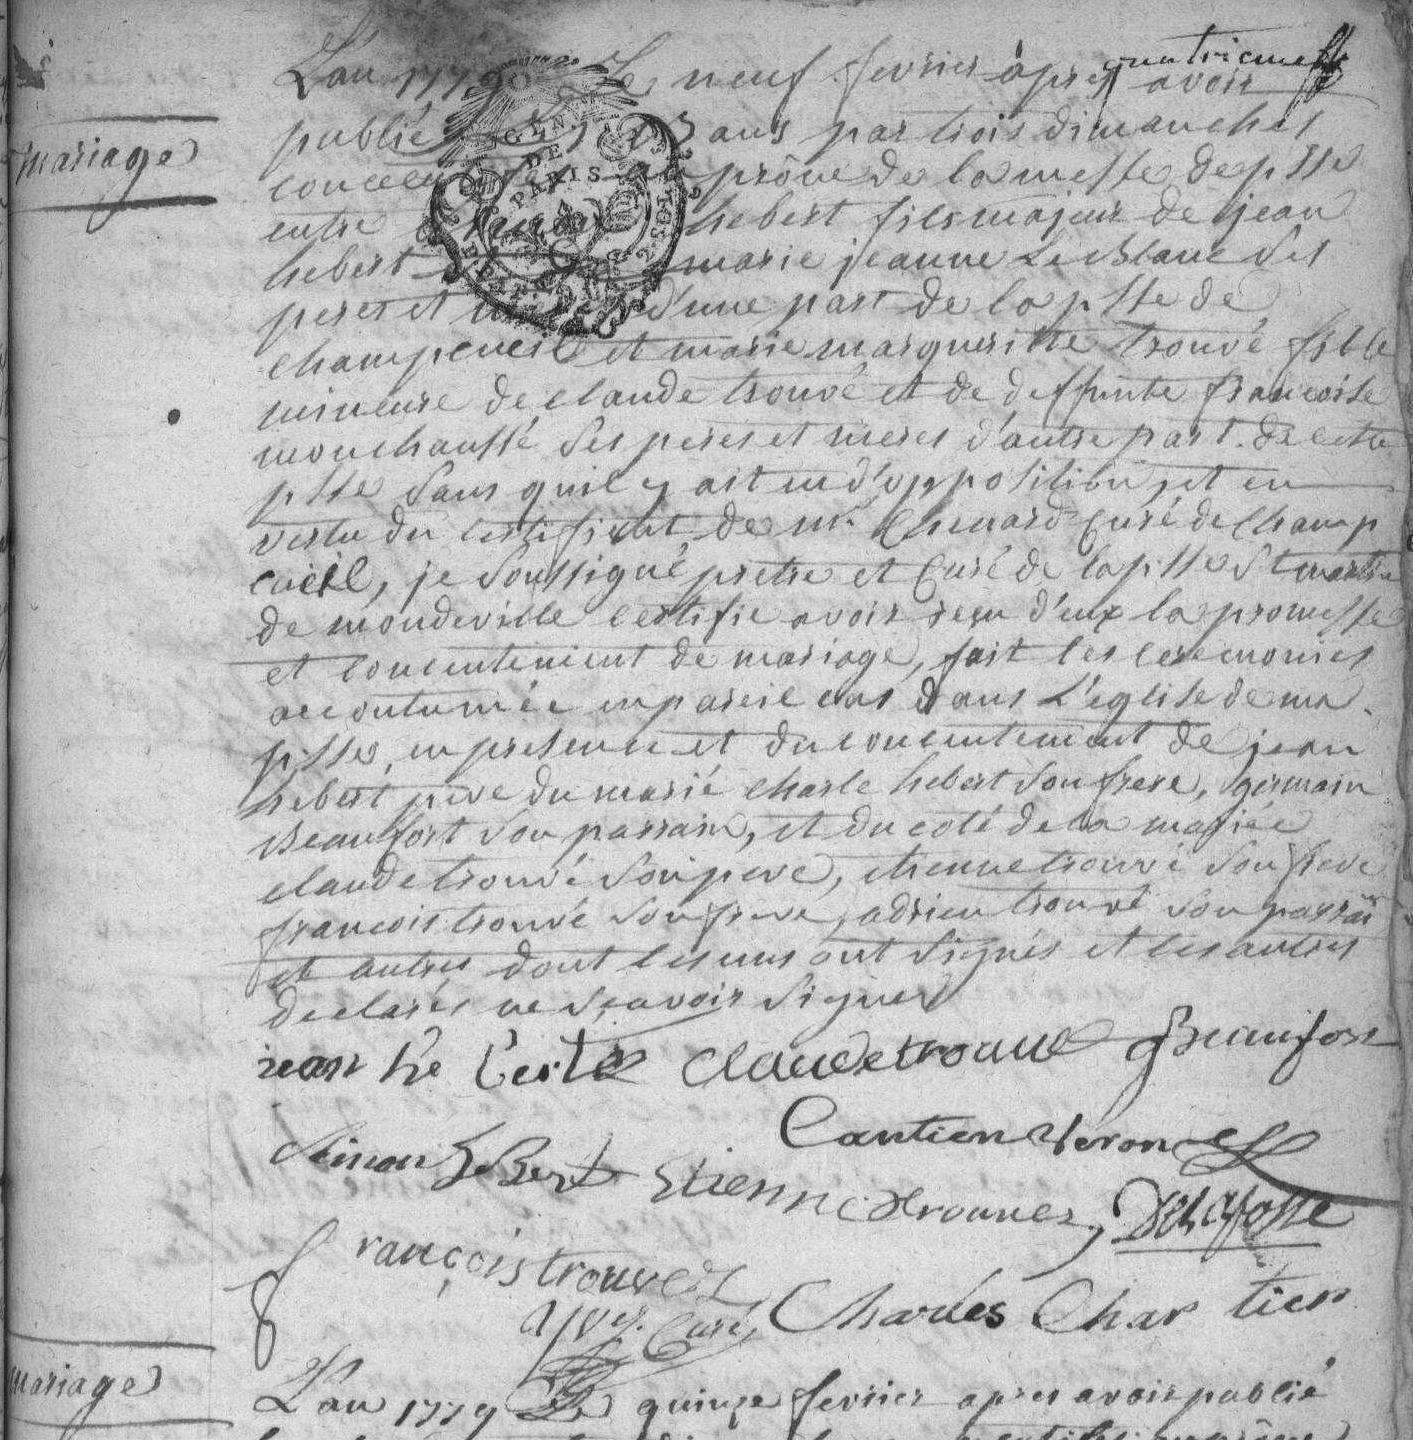 quatrieme
L'an 1779 Le neuf fevrier après avoir
publié bans par trois dimanches
au prône de la messe de psse
entre Simon hebert fils majeur de jean
hebert marie jeanne Le Blanc ses
peres et d'une part de la psse de
champcueil et marie margueritte trouvé fille
mineure de claude trouvé et de deffunte francoise
monchaussé ses peres et meres d'autre part de cette
psse sans quil y ait eu d'opposition, et en
vertu du certificat de mr. Chenard Curé de Champ
cueil, je soussigné pretre et Curé de la psse St martin
de mondeville certifie avoir reçu d'eux la promesse
et concentement de mariage, fait les ceremonies
accoutumée en pareil cas dans L'eglise de ma
psse, en presence et du concentement de jean
hebert pere du marié charle hebert son frere, germain
Beaufort son parrain, et du coté de la mariée
claude trouvé son pere, etienne trouvé son frere
francois trouvé son frere, adrien trouvé son parrai
et autres dont les uns ont signés et les autres
declarés ne sçavoir signer
jean he bert Claudetrouve gBeaufort
Cantien Veron
Simon heBert Etienne trouvez Delafosse
françois trouvé
Curé Charles Char tier
mariage
L'an 1779 Le quinze fevrier apres avoir publié
mariage
GEN DE PARIS